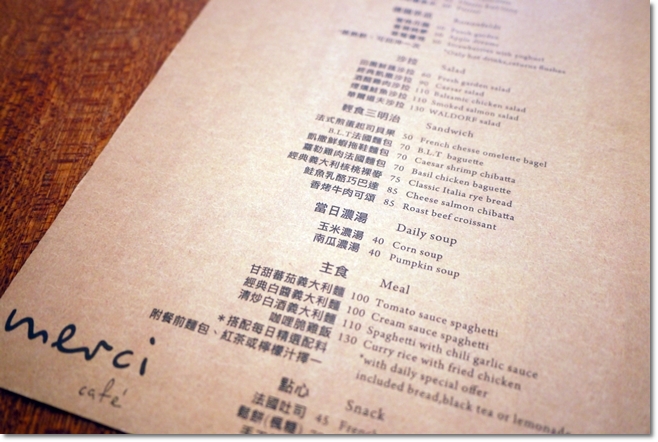 沙拉 Salad
田園鮮蔬沙拉 Fresh garden salad
經典凱撒沙拉 Caesar salad
Balsamic chicken salad
煙燻鮭魚沙拉 110 Smoked salmon salad
華爾道夫沙拉 130 WALDORF salad
輕食三明治 Sandwich
法式煎蛋起司貝果 50 French chesse omelette bagel
B.L.T法國麵包 70 B.L.T. baguette
凱撒鮮蝦拖鞋麵包 70 Caesar shrimp chibatta
蘿勒雞肉法國麵包 70 Basil chicken baguette
經典義大利核桃裸麥 75 Classic Italia rye bread
鮭魚乳酪巧巴達 85 Cheese salmon chibatta
香烤牛肉可頌 85 Roast beef croissant
當日濃湯 Daily soup
玉米濃湯 40 Corn soup
南瓜濃湯 40 Pumpkin soup
主食 Meal
甘甜蕃茄義大利麵 100 Tomato sauce spaghetti
經典白醬義大利麵 100 Cream sauce spaghetti
清炒白酒義大利麵 110 Spaghetti with chili garlic sauce
咖哩脆雞飯 130 Curry rice with fried chicken
*搭配每日精選配料 *with daily special offer
附餐前麵包、紅茶或檸檬汁擇一 included bread,black tea or lemonade
點心 Snack
法國吐司 45 French
鬆餅(楓糖)
merci
café